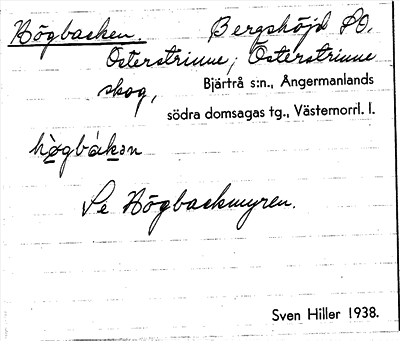 Högbacken. Bergshöjd SO.
Österstrinne, Österstrinne
skog,
Bjärtrå s:n., Ångermanlands
södra domsagas tg., Västernorrl. l.
hø̀gbákən
Se Högbackmyren.
Sven Hiller 1938.